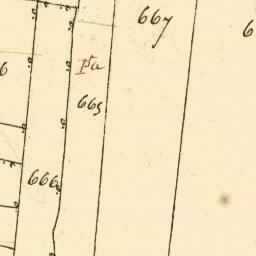 667
6
6
665
666